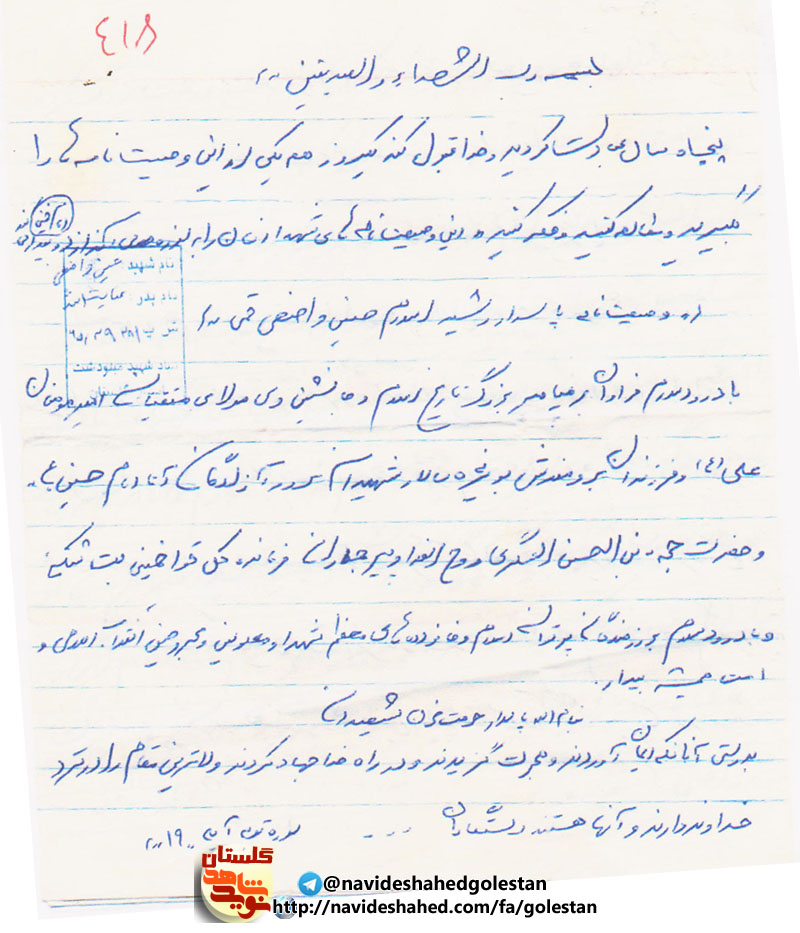 ٤١٨
بسمه رب الشهداء و الصدیقین
پنجاه سال عبادت کردید و خدا قبول کند یکروز هم یکی از این وصیت نامه ها را
بگیرید و مطالعه کنید و فکر کنید این وصیت نامه های شهدا
نام شهید
نام پدر: عنایت الله
وصیت نامه پاسدار رشید اسلام
با درود و سلام فراوان بر پیامبر بزرگ تاریخ اسلام و جانشین وی مولای متقیان امیرمومنان
علی (ع) و فرزندان برومندش بویژه سالار شهیدان سرور آزادگان آقا امام حسین (ع)
و حضرت حجه بن الحسن العسگری روح الفدا و پیر جماران فرمانده کل قوا خمینی بت شکن
و با درود و سلام بر رزمندگان پرتوان اسلام و خانواده های معظم شهدا و معلولین و مجروحین انقلاب اسلامی و
امت همیشه بیدار.
بنام الله پاسدار حرمت خون شهیدان
بدرستی آنانکه ایمان آوردند و هجرت گزیدند و در راه خدا جهاد کردند والاترین مقام را در نزد
خداوند دارند و آنها هستند رستگاران ....
سوره توبه آیه ١٩
گلستان
نوید شاهد
@navideshahedgolestan
http://navideshahed.com/fa/golestan